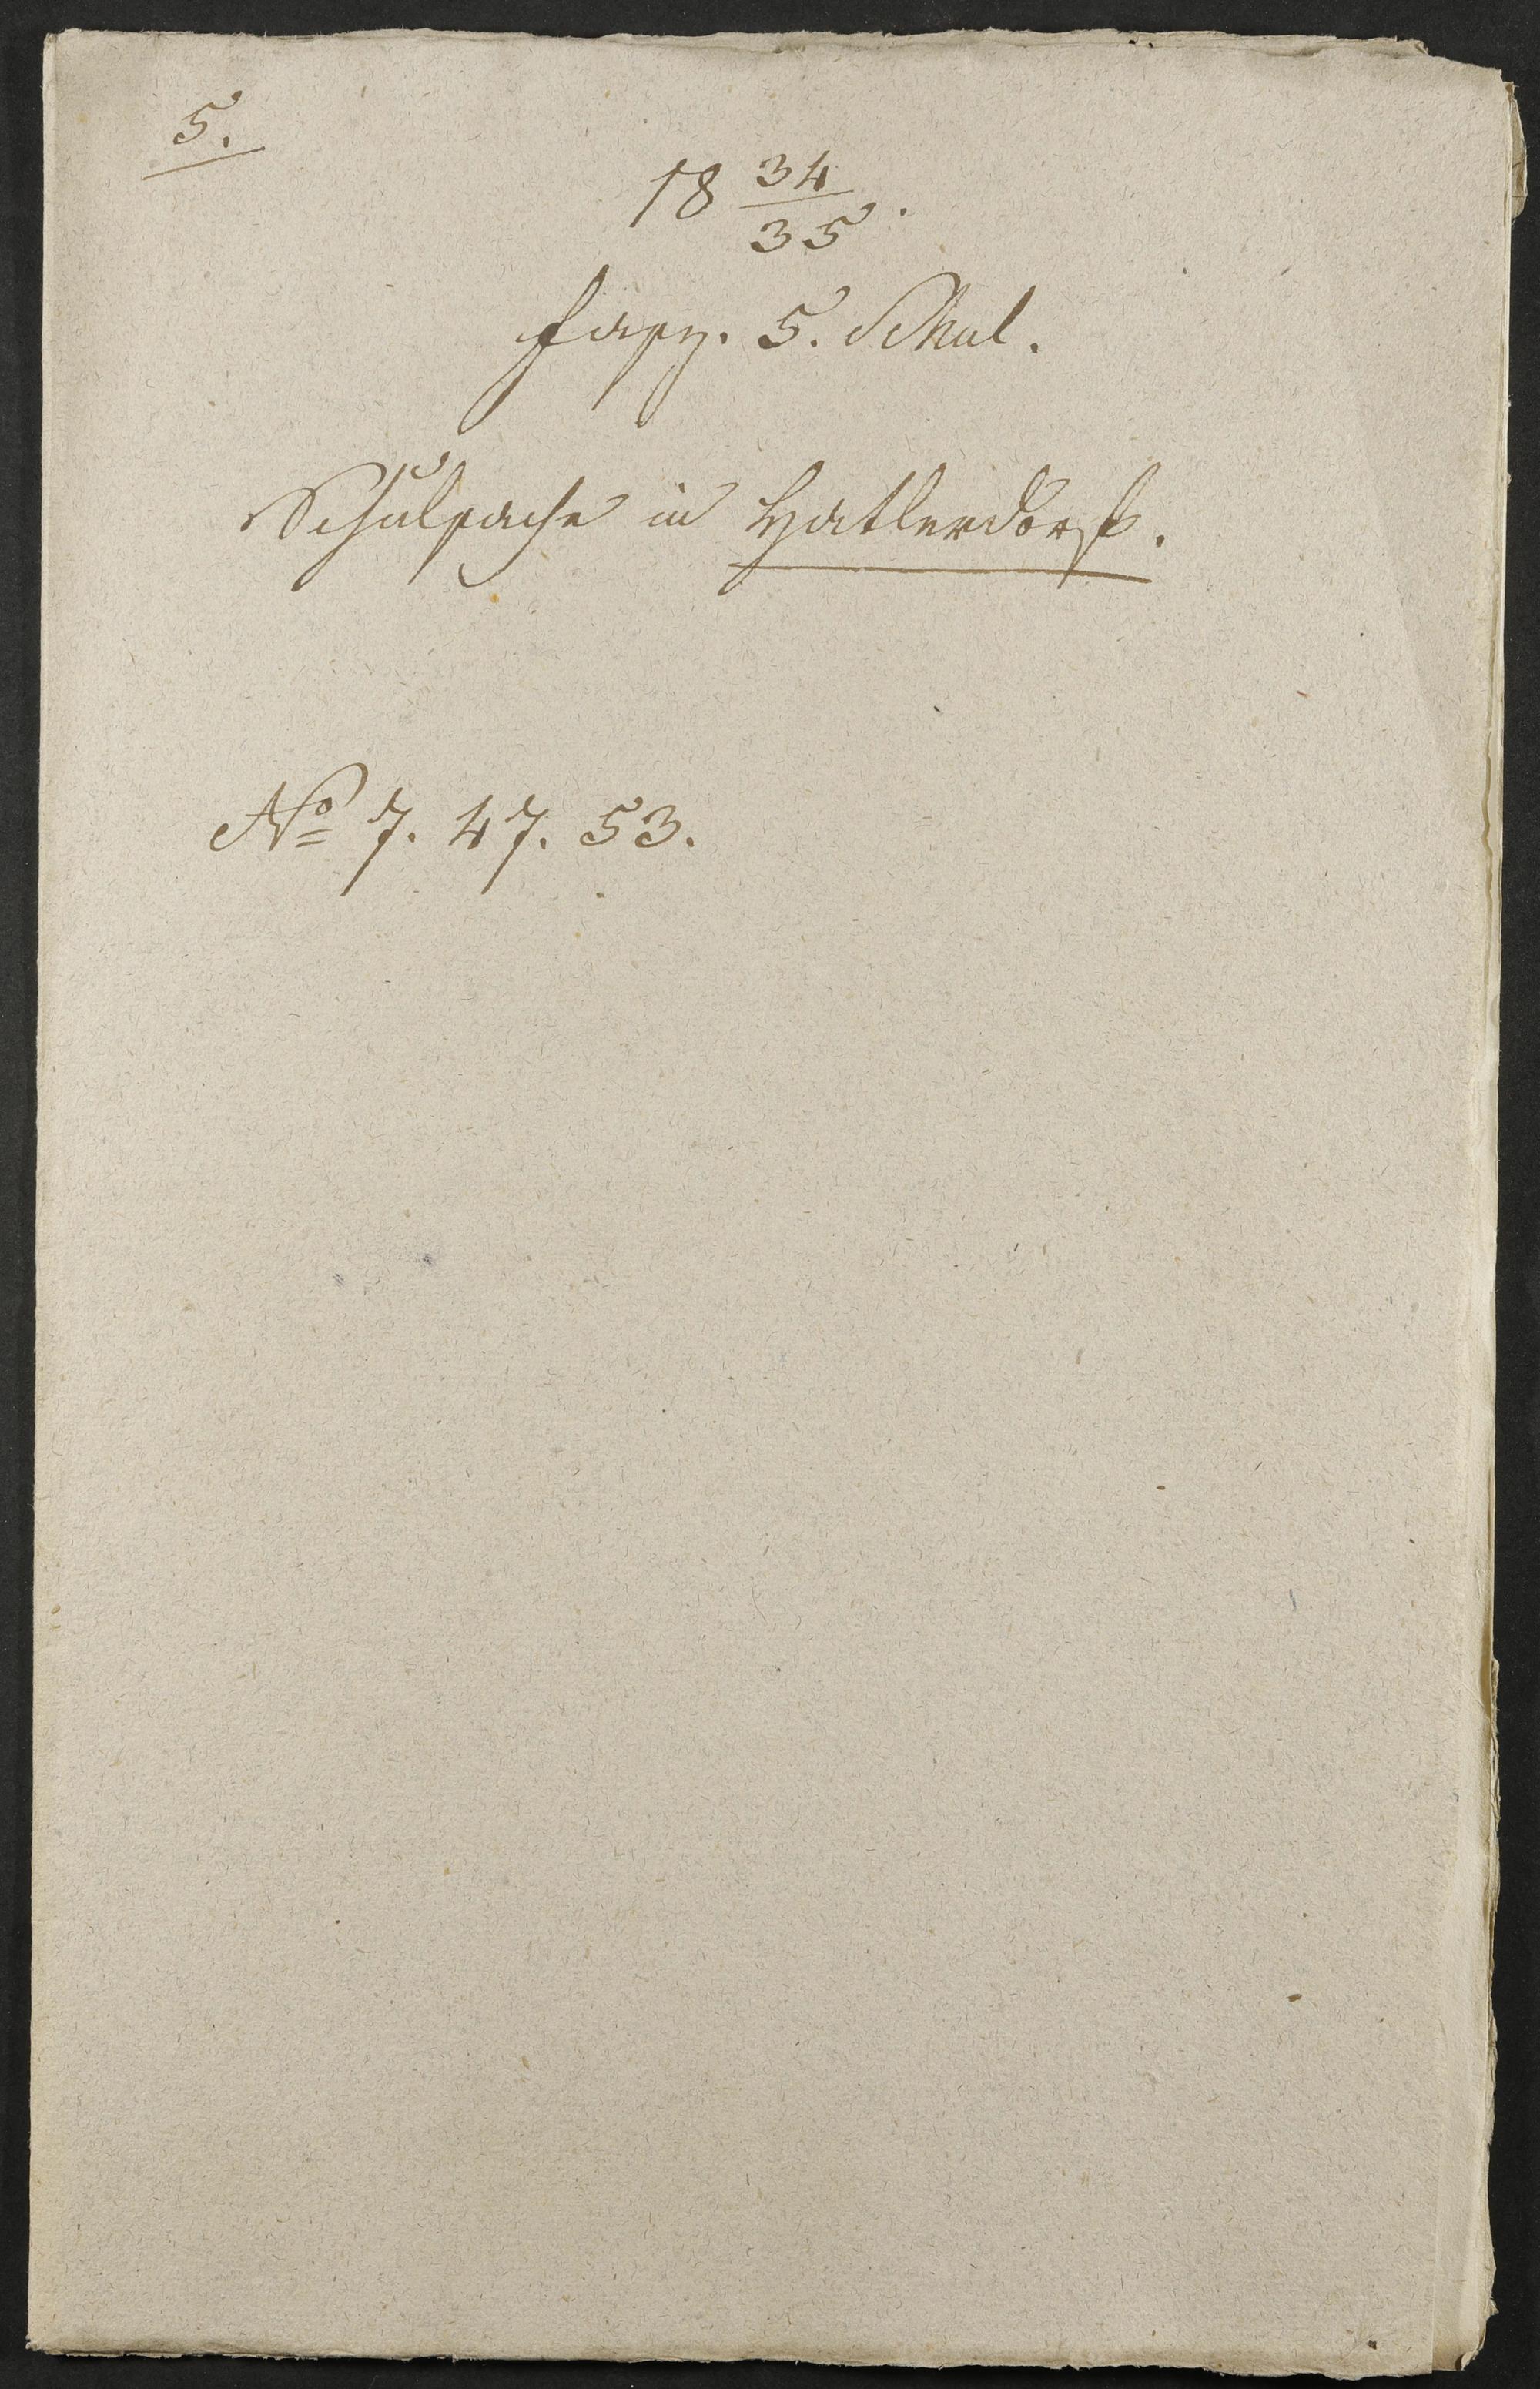 5.
18 34/35.
Fasz. 5. Schul.
Schulsache in Hatlerdorf.
No 7. 47. 53.